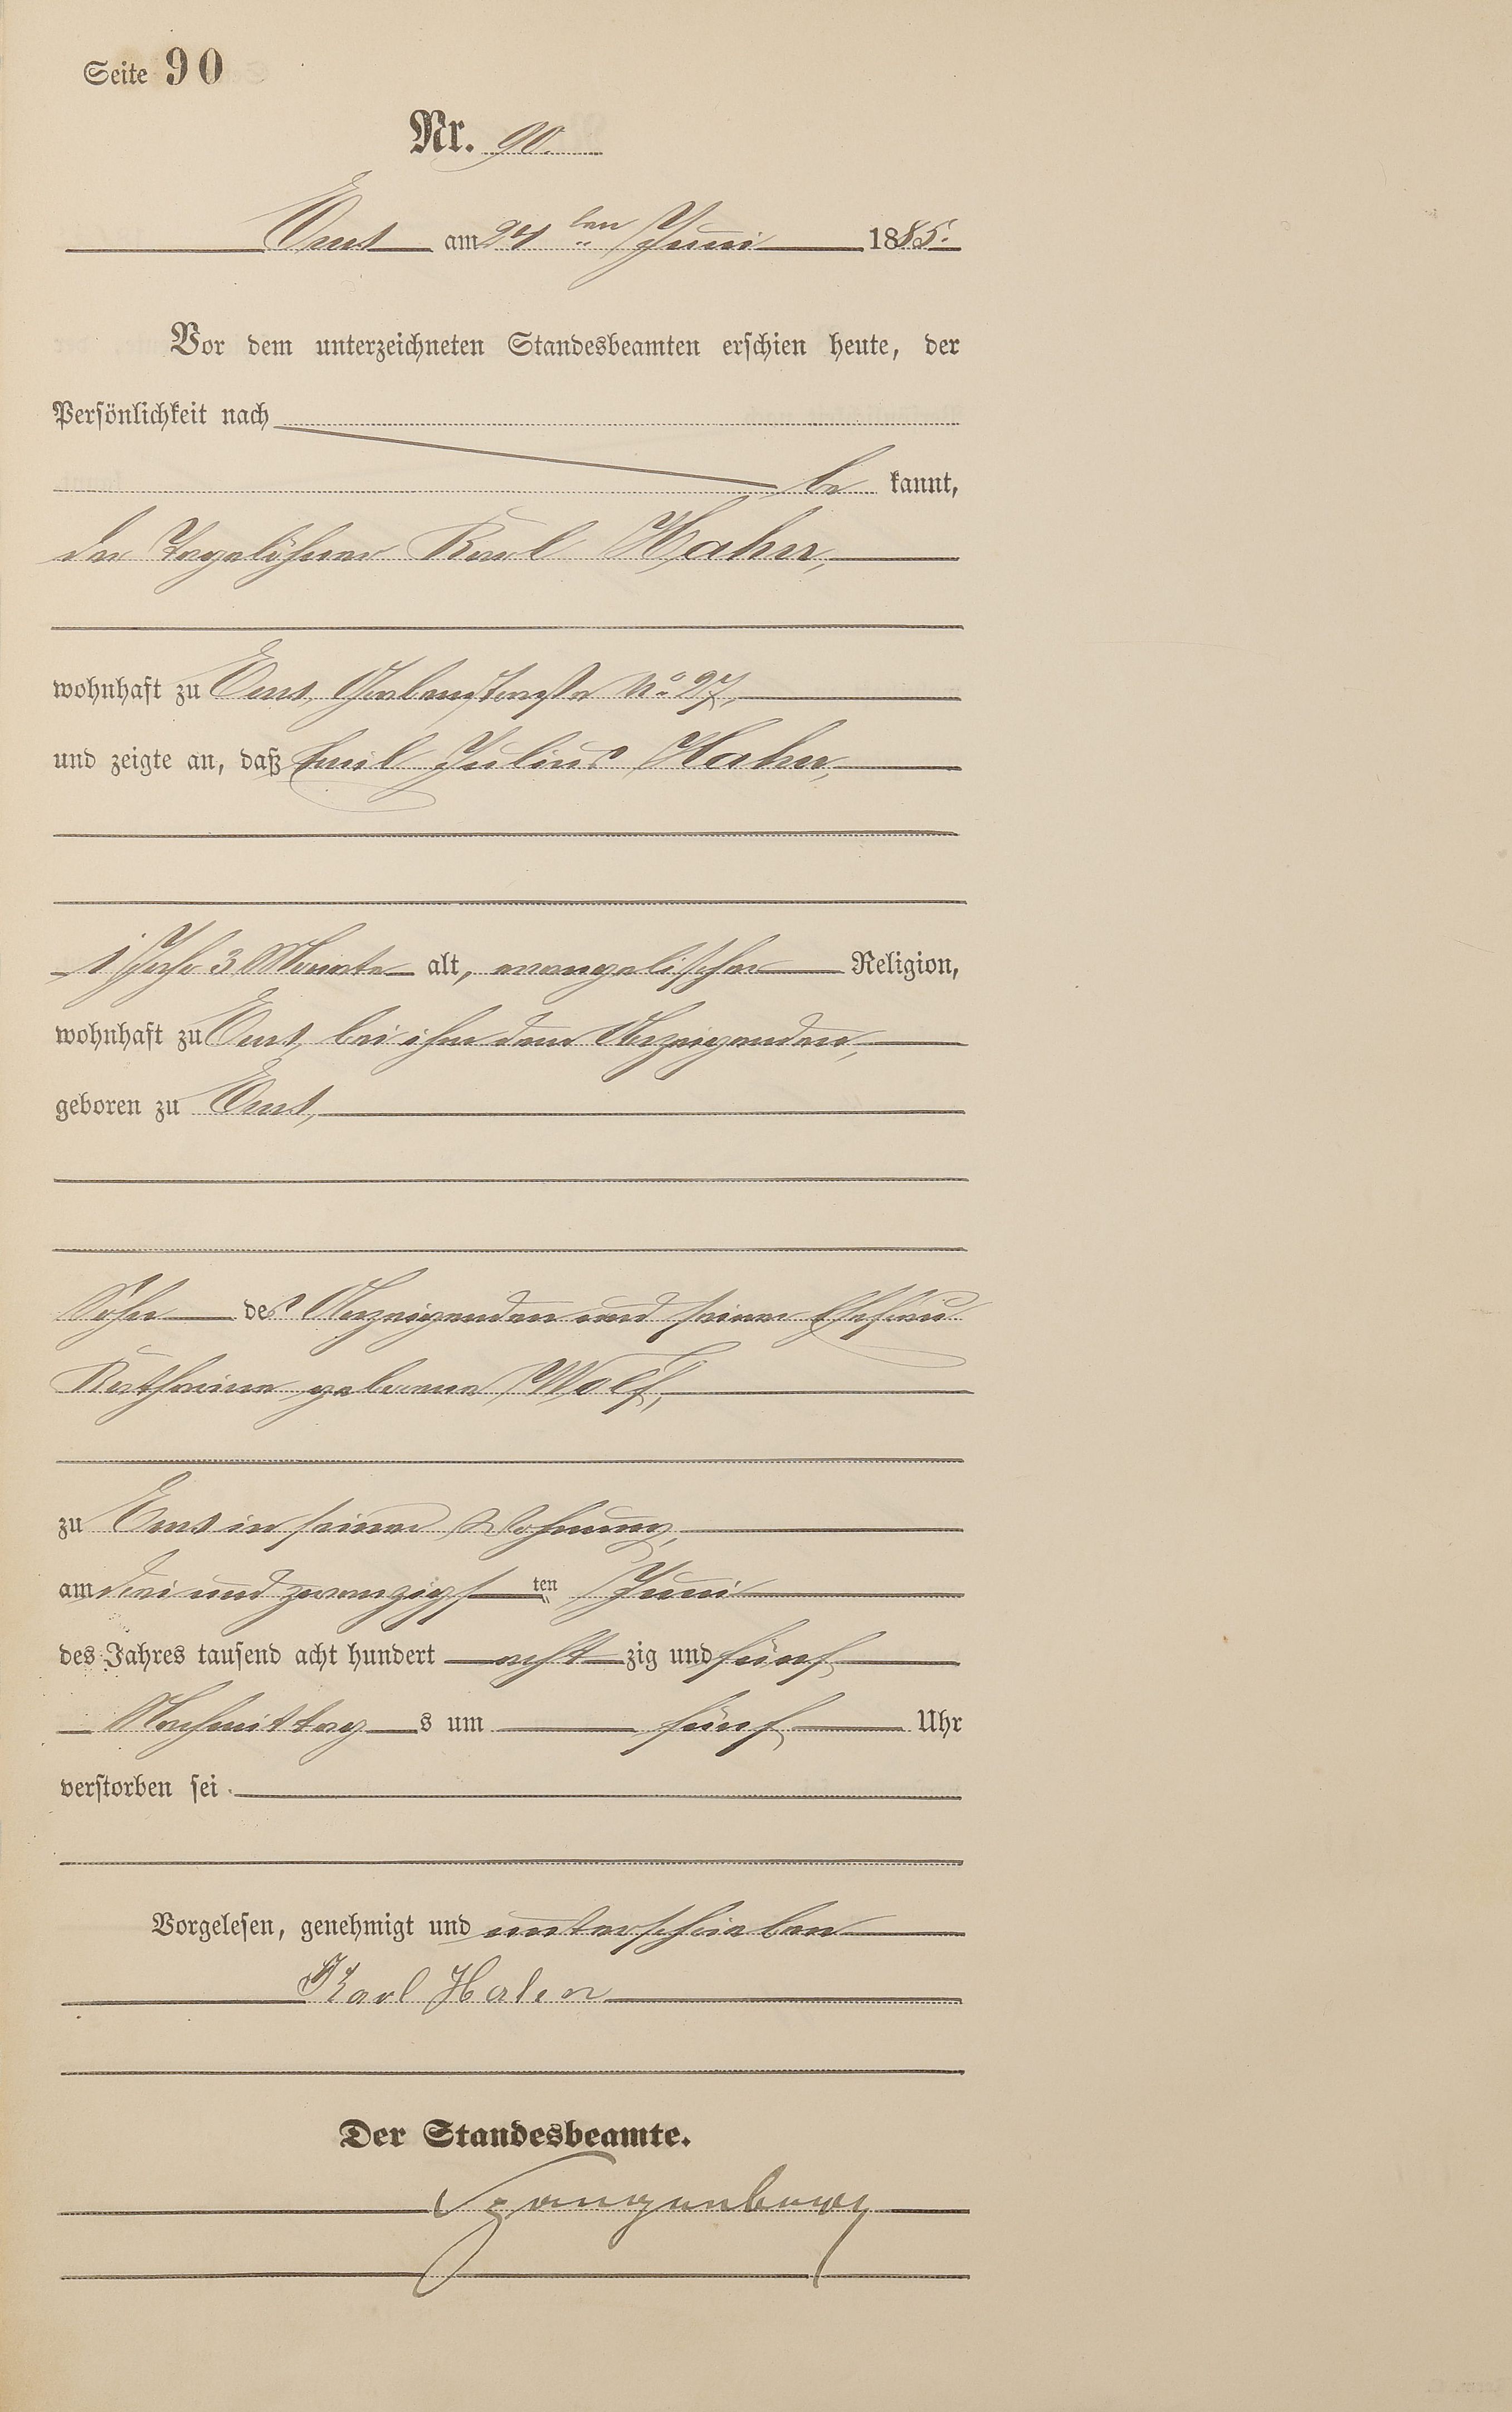 Seite 90
Nr. 90.
Ems am 24ten Juni 1885.
Vor dem unterzeichneten Standesbeamten erschien heute, der
Persönlichkeit nach
be kannt,
der Tagelöhner Karl Hahn,
wohnhaft zu Ems, Grabenstraße No. 27,
und zeigte an, daß Emil Julius Hahn,
1 Jahr 3 Monate alt, evangelischer Religion,
wohnhaft zu Ems, bei ihm dem Anzeigenden,
geboren zu Ems,
Sohn des Anzeigenden und seiner Ehefrau
Katharina geborene Wolf,
zu Ems in seiner Wohnung,
am drei und zwanzigsten Juni
des Jahres tausend acht hundert acht zig und fünf
Nachmittags um fünf Uhr
verstorben sei.
Vorgelesen, genehmigt und unterschrieben
Karl Hahn
Der Standesbeamte.